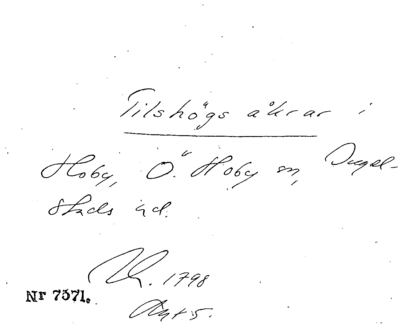 Tilshögs åkrar i
Hoby, Ö. Hoby sn, Ingel-
stads hd.
1798
Nr 7371.